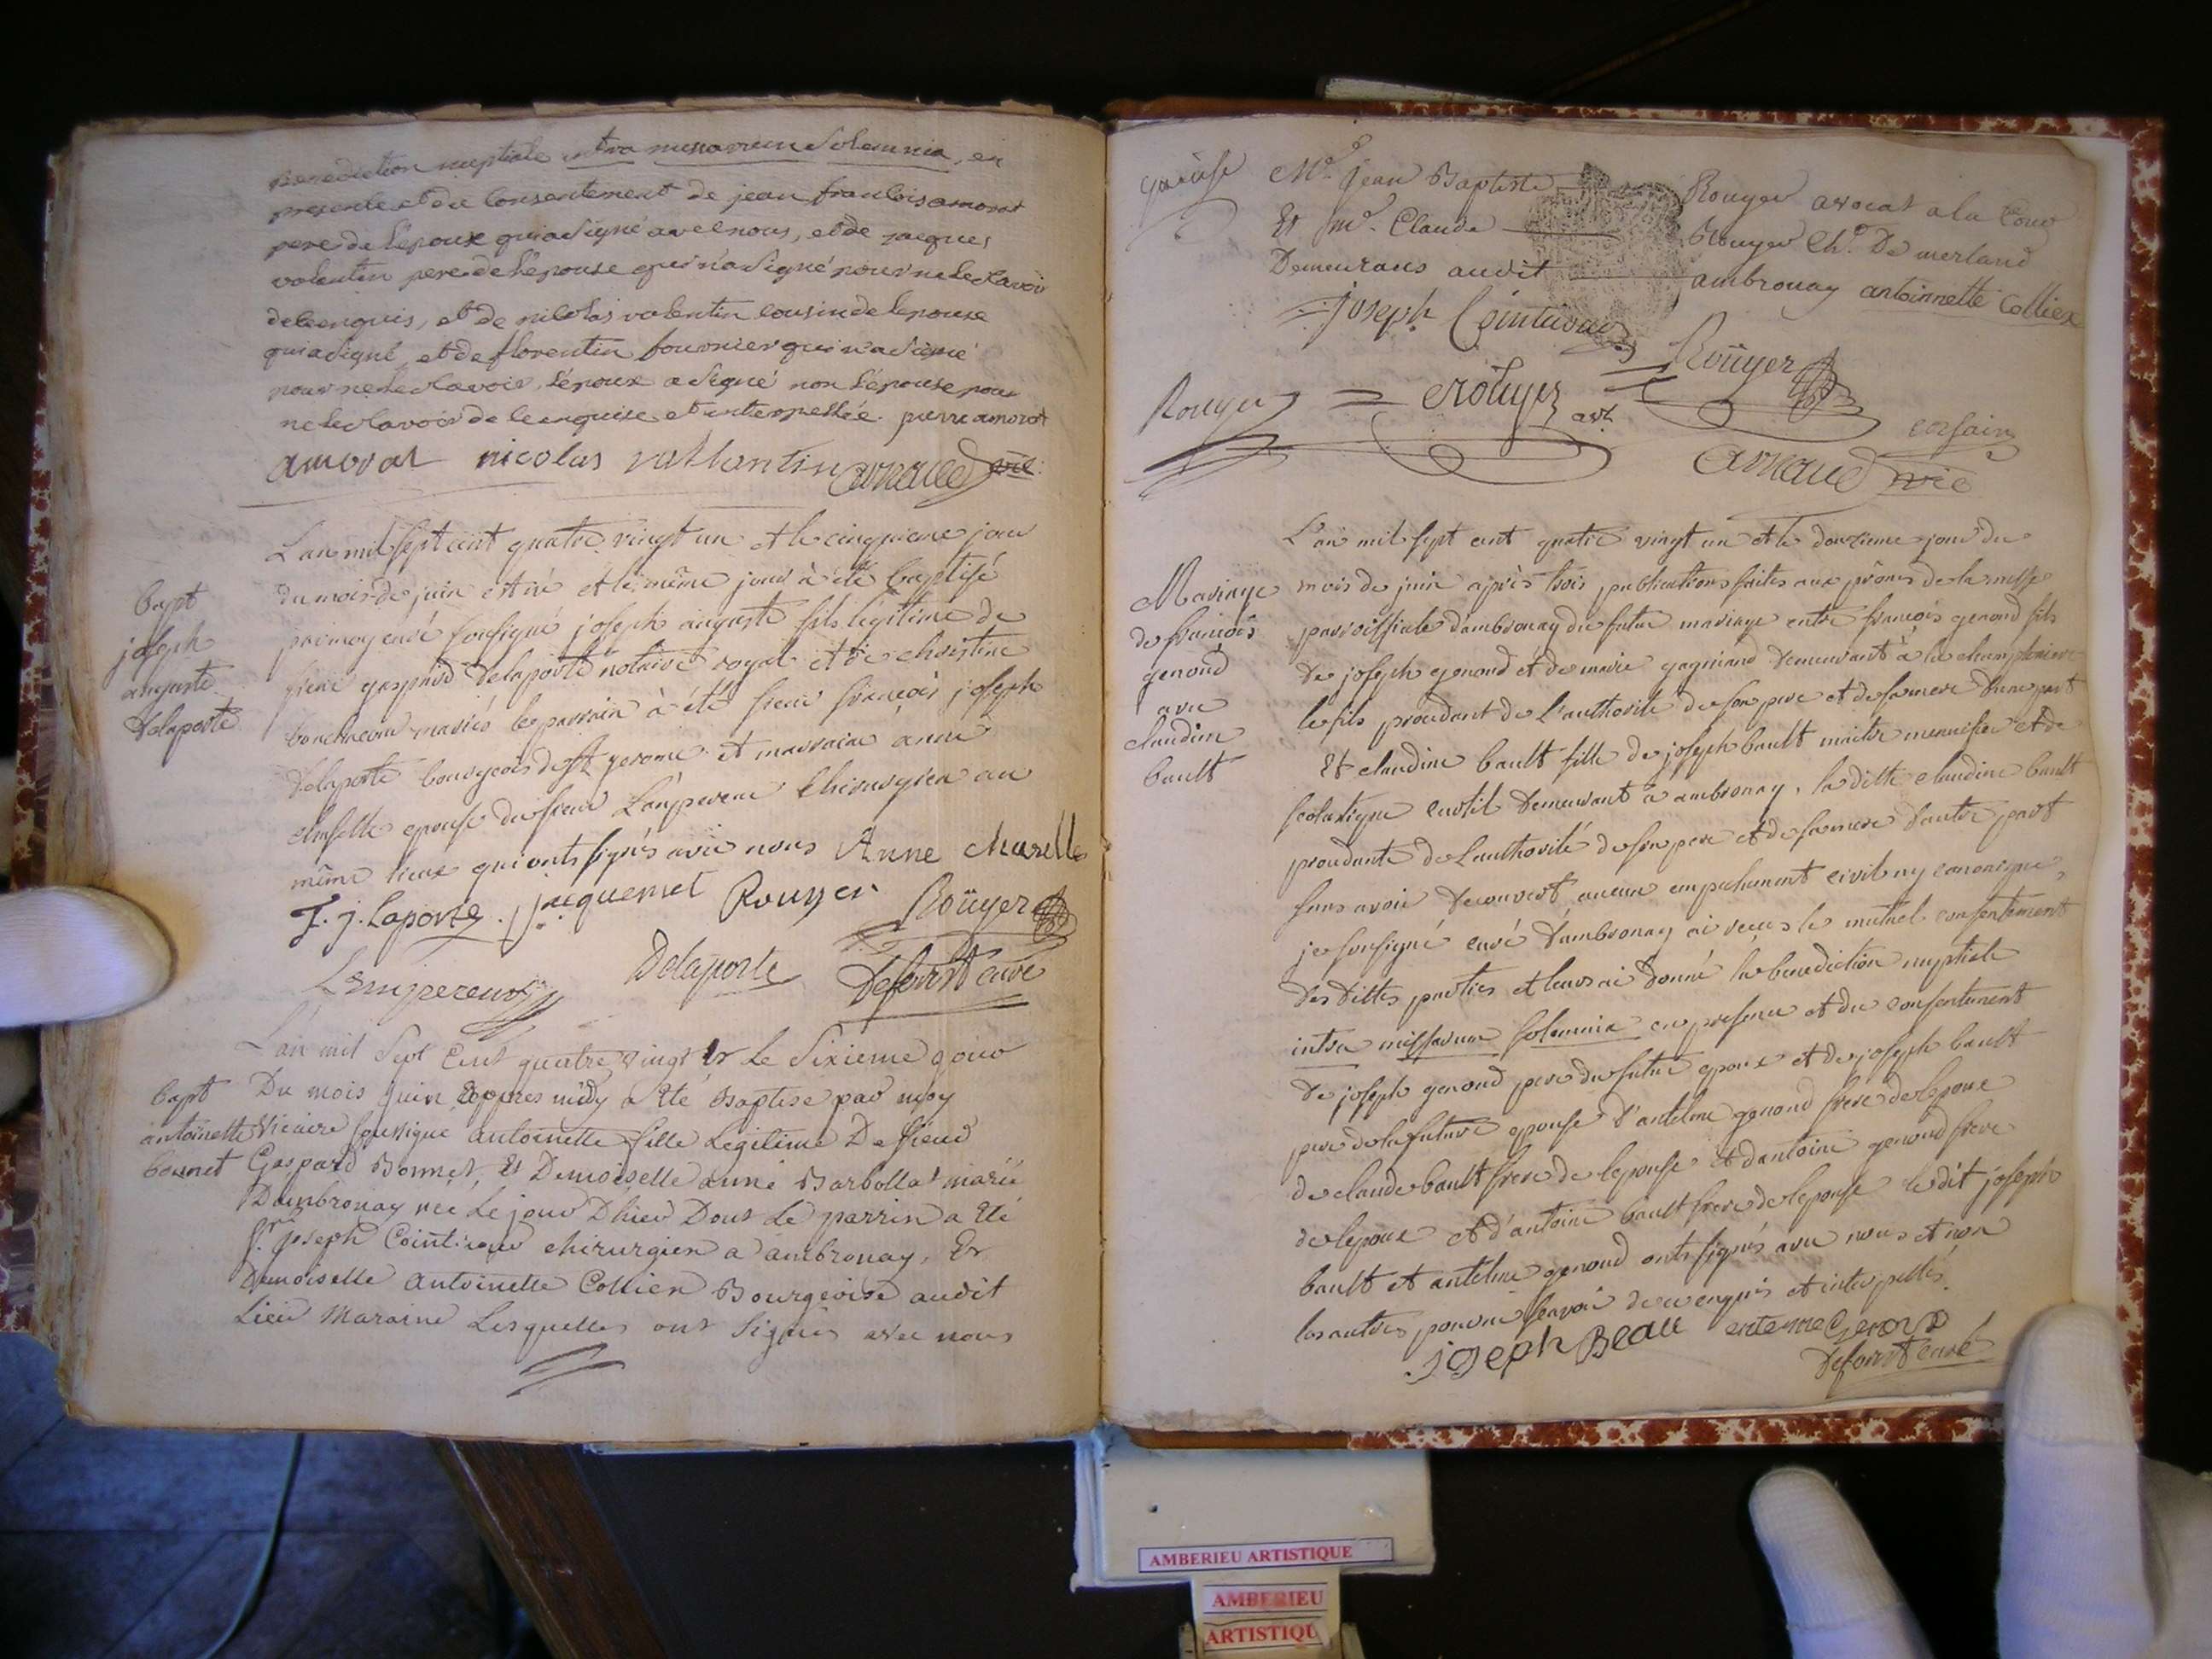 Benediction nuptiale intra missarum solemnia, en
presence et du consentement de jean francois amorat
pere de l'epoux qui a signé avec nous, et de jacques
valentin pere de l'epouse qui n'a signé pour ne le scavoir
de ce enquis, et de nicolas valentin cousin de l'epouse
qui a signé, et de florentin fournier qui n'a signé
pour ne le scavoir, l'époux a signé non l'épouse pour
ne le scavoir de ce enquise et interpellée. pierre amorat
amorat nicolas vallantin arnaud vic:
L'an mil sept cent quatre vingt un et le cinquieme jour
du mois de juin est né et le même jour à été baptisé
par moy curé soussigné joseph auguste fils légitime de
sieur gaspard Delaporte notaire royal et de christine
mariés le parrain à été sieur françois joseph
Delaporte bourgeois de st jerome et marraine anne
epouse du sieur Lempereur Chirurgien au
même lieux qui onts signés avec nous Anne charelle
bapt
joseph
auguste
Delaporte
F. j. Laporte. jacquemet Rouyer Roüyer
Lempereur Delaporte Deforest curé
L'an mil Sept Cent quatre vingt Et Le Sixieme jour
Du mois juin apres midy a Eté Baptisé par moy
Vicaire soussigné antoinette fille Legitime De sieur
Gaspard Bonnet, Et Demoiselle anne Barbollat marié
Dambronay née Le jour Dhier Dont Le parrin a Eté
Sr. joseph Cointicour chirurgien a ambronay, Et
Demoiselle antoinette Collier Bourgeoise audit
Lieu Maraine Lesquelles ont Signés avec nous
bapt
antoinette
bonnet
Me. jean Baptiste Rouyer avocat a la Cour
Et me. Claude Rouyer Chr. De merland
Demeurans audit ambronay antoinnette Collier
joseph Cointicour
Roüyer
Rouyer Roüyer avt.
corsain
arnaud vic
L'an mil sept cent quatre vingt un et le douzieme jour du
mois de juin après trois publications faites aux prônes de la messe
parroissiale d'ambronay du futur mariage entre françois genoud fils
de joseph genoud et de marie gagniard demeurant à
le fils procedant de l'authorité de son pere et de sa mere d'une part
Et claudine bault fille de joseph bault maitre menuisier et de
scolastique cartil demeurant à ambronay, la ditte claudine bault
procedante de l'authorité de son pere et de sa mere d'autre part
sans avoir decouvert aucun empechement civil ny canonique,
je soussigné curé d'ambronay ai reçus le mutuel consentement
des dittes parties et leurs ai donné la benediction nuptiale
intra missarum solemnia en presence et du consentement
de joseph genoud pere du futur epoux et de joseph bault
pere de la future epouse d'antelme genoud frere de lepoux
de claude bault frere de lepouse et dantoine genoud frere
de lepoux et d'antoine bault frere de lepouse le dit joseph
bault et antelme genoud onts signés avec nous et non
les autres pour ne scavoir de ce enquis et interpellés.
Mariage
de françois
genoud
avec
claudine
bault
joseph Beau entelme Genoud
Deforest curé
AMBERIEU ARTISTIQUE
AMBERIEU
ARTISTIQU